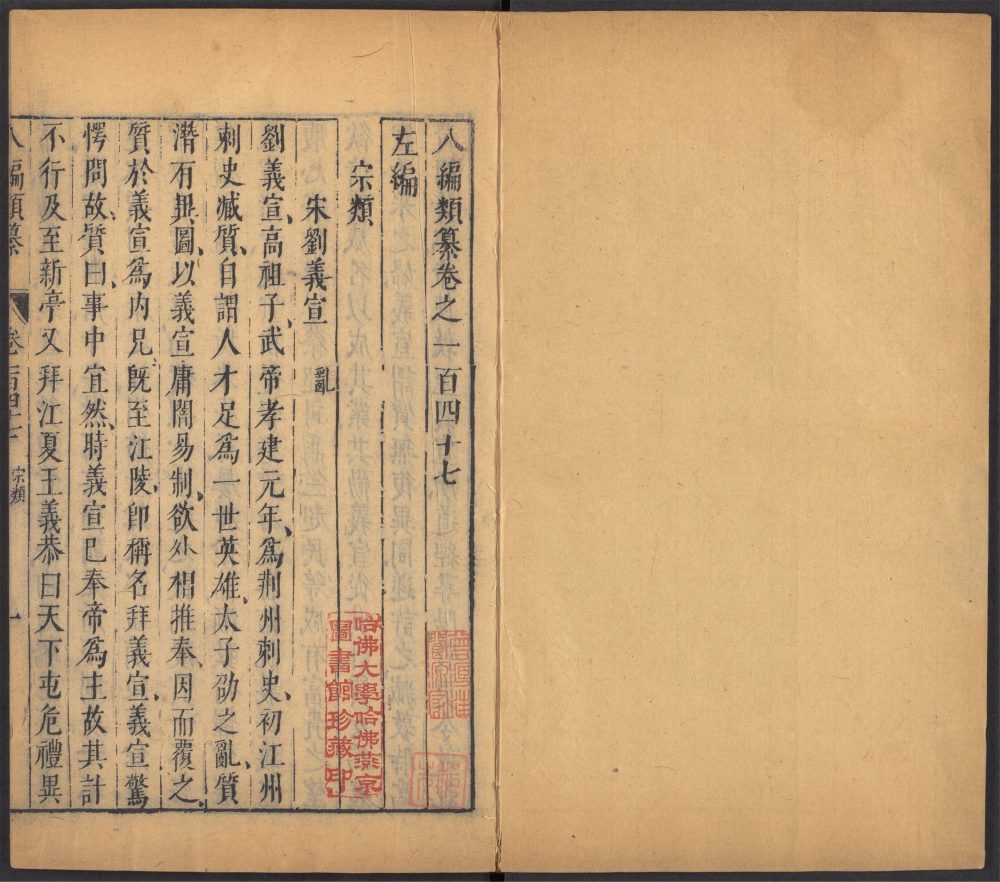 八編類纂卷之一百四十七
左編
宗類
宋劉義宣 亂
劉義宣、高祖子、武帝孝建元年、爲荆州刺史、初江州
刺史臧質、自謂人才足爲一世英雄、太子劭之亂、質
潛有異圖、以義宣庸闇易制、欲外相推奉、因而覆之、
質於義宣爲内兄、旣至江陵、卽稱名拜義宣、義宣驚
愕問故、質曰、事中宜然、時義宣巳奉帝爲主、故其計
不行、及至新亭、又拜江夏王義恭曰、天下屯危、禮異
八編類纂
宗類
一
哈佛大學哈佛燕京
圖書館珍藏印